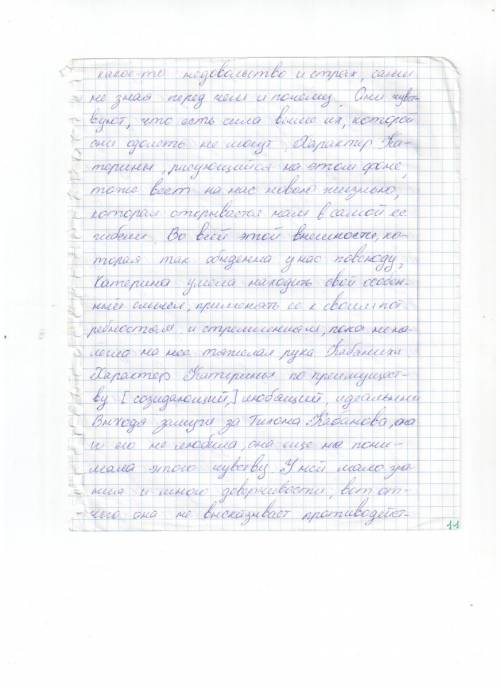 какое-то недовольство и страх, сами
не зная перед чем и почему. Они чувст-
вуют, что есть сила выше их, которой
они одолеть не могут. Характер Ка-
терины, рисующийся на этом фоне,
тоже веет на нас новою жизнью,
которая открывается нам в самой ее
гибели. Во всей этой внешности, ко-
торая так обыденна у нас повсюду,
Катерина умела находить свой особен-
ный смысл, применять ее к своим пот
ребностям и стремлениям, пока не на-
легла на нее тяжелая рука Кабанихи.
Характер Катерины по преимущест-
ву [созидающий,] любящий, идеальный
Выходя замуж за Тихона Кабанова, она
и его не любила, она еще не пони-
мала этого чувству. У ней мало зна
ния и много доверчивости, вот от-
чего она не высказывает противодейст-
11